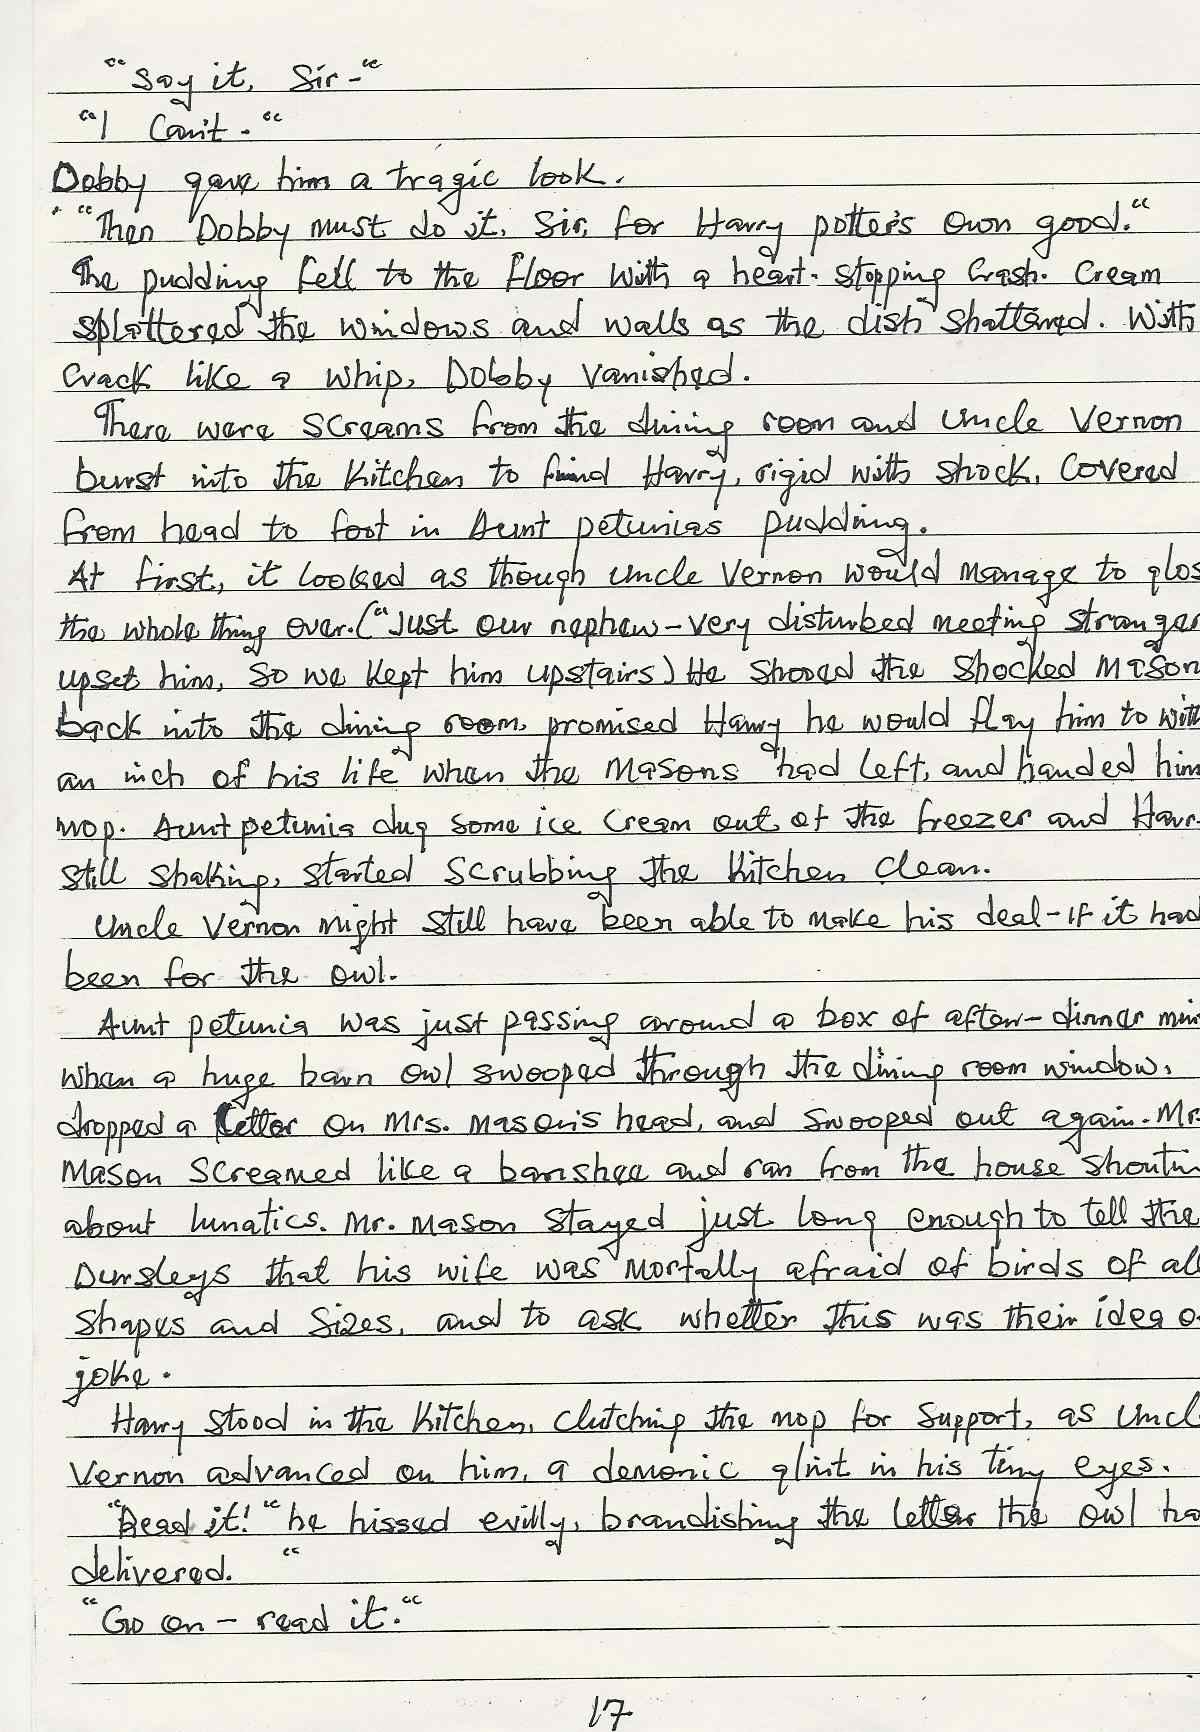 "Say it, Sir-"
"I Can't-"
Dobby gave him a tragic look.
"Then Dobby must do it, Sir, for Harry potter's own good."
The pudding fell to the floor with a heart-stopping Crash. Cream
splattered the windows and walls as the dish shattered. With
Crack like a whip, Dobby vanished.
There were screams from the dining room and Uncle Vernon
burst into the Kitchen to find Harry, rigid with shock, Covered
from head to foot in Aunt petunias pudding.
At first, it looked as though Uncle Vernon would manage to glos
the whole thing over.("Just our nephew-very disturbed meeting stranger
upset him, So we kept him upstairs) He shooed the shocked Mason
back into the dining room, promised Harry he would flay him to with
an inch of his life when the Masons had left, and handed him
mop. Aunt petunia dug some ice Cream out of the freezer and Harr
still shaking, started scrubbing the Kitchen Clean.
Uncle Vernon might still have been able to make his deal-if it had
been for the owl.
Aunt petunia was just passing around a box of after-dinner min
when a huge barn owl swooped through the dining room window,
dropped a letter on Mrs. Mason's head, and swooped out again. Mr
Mason screamed like a banshee and ran from the house shoutin
about lunatics. Mr. Mason stayed just long enough to tell the
Dursleys that his wife was mortally afraid of birds of all
shapes and sizes, and to ask whether this was their idea o
joke.
Harry stood in the Kitchen, Clutching the mop for support, as Uncl
Vernon advanced on him, a demonic glint in his tiny eyes.
"Read it!" he hissed evilly, brandishing the letter the owl ha
delivered. "
"Go on - read it."
17